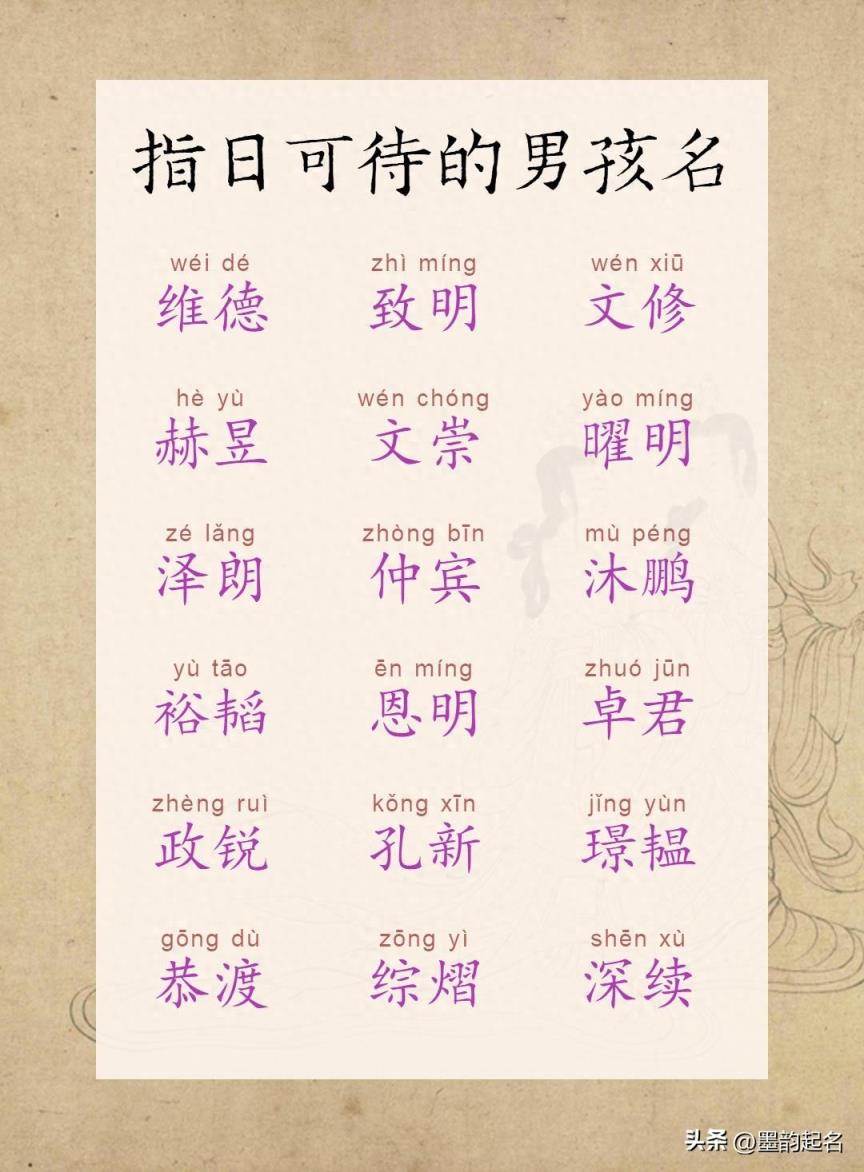 指日可待的男孩名
wéi dé zhì míng wén xiū
维德 致明 文修
hè yù wén chóng yào míng
赫昱 文崇 曜明
zé lǎng zhòng bīn mù péng
泽朗 仲宾 沐鹏
yù tāo ēn míng zhuó jūn
裕韬 恩明 卓君
zhèng ruì kǒng xīn jǐng yùn
政锐 孔新 璟韫
gōng dù zōng yì shēn xù
恭渡 综熠 深续
头条 @墨韵起名